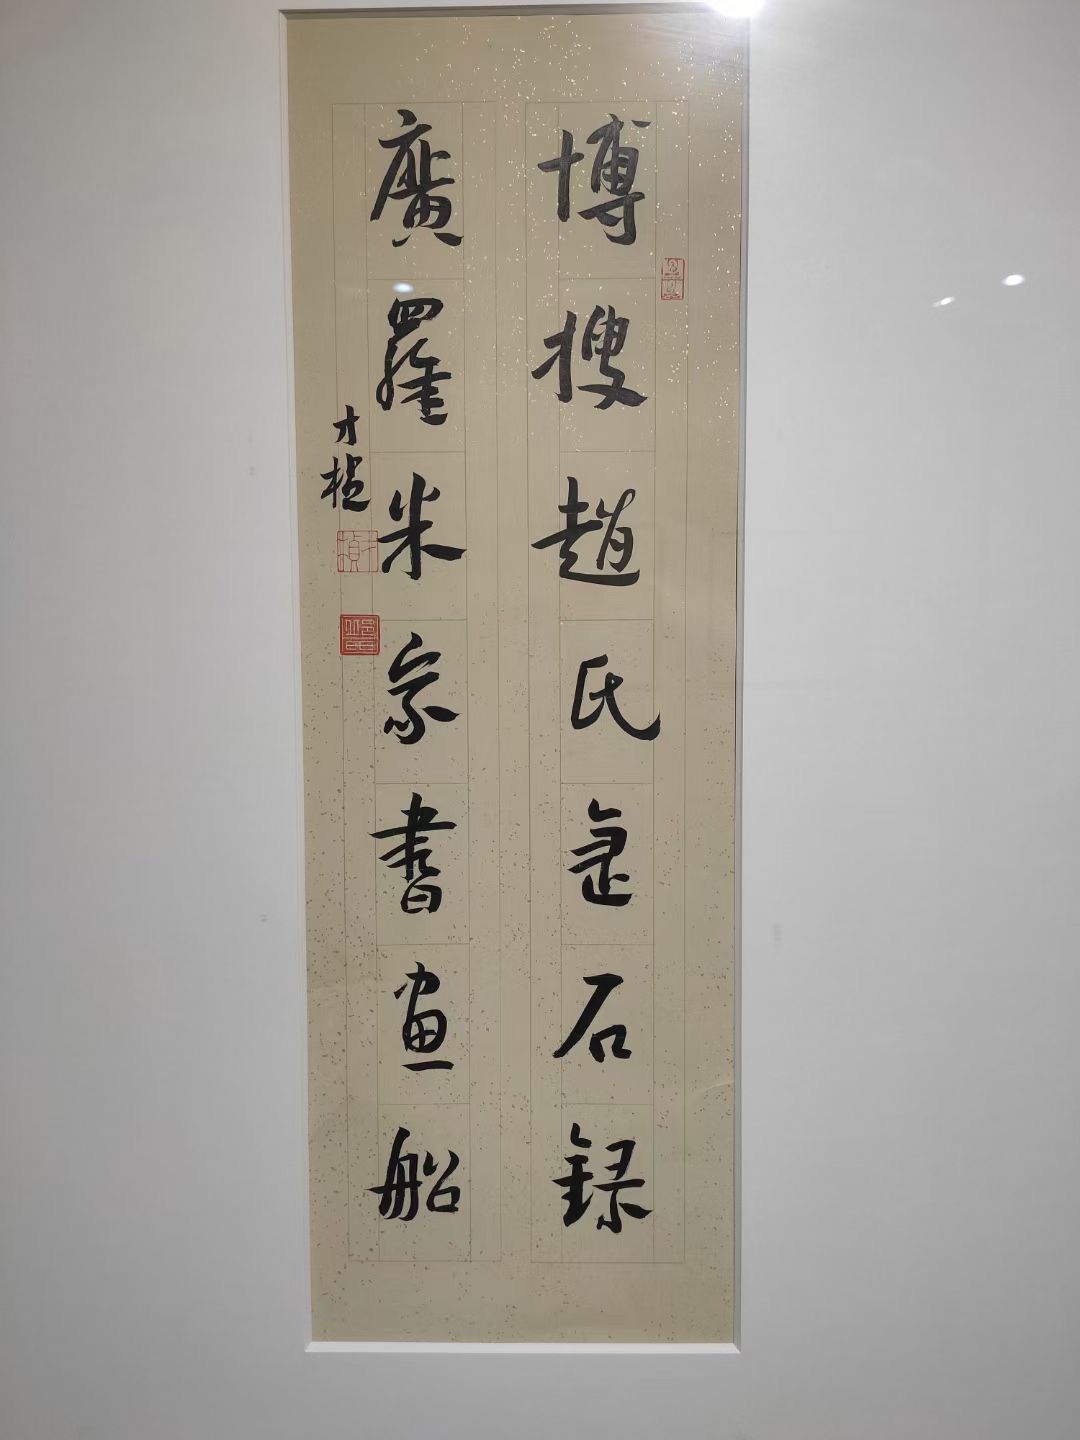 博搜趙氏金石録
廣羅米家書畫船
才楨